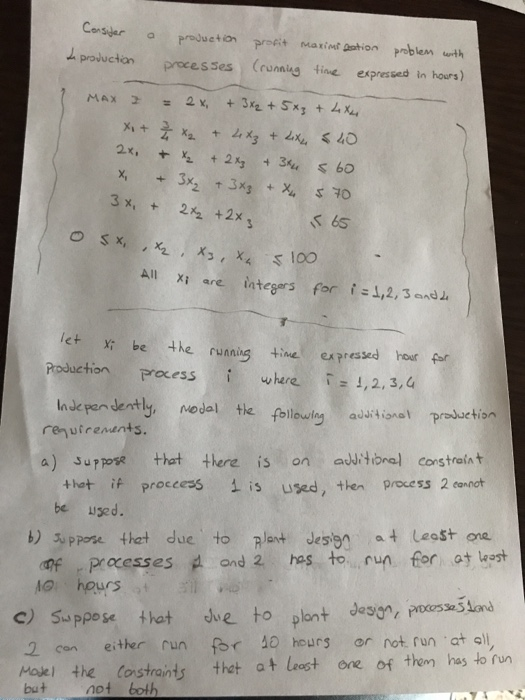 Consider a production profit maximization problem with
4 production processes (running time expressed in hours)
MAX Z = 2x₁ + 3x₂ + 5x₃ + 4x₄
x₁ + 3/4 x₂ + 4x₃ + 4x₄ ≤ 40
2x₁ + x₂ + 2x₃ + 3x₄ ≤ 60
x₁ + 3x₂ + 3x₃ + x₄ ≤ 70
3x₁ + 2x₂ + 2x₃ ≤ 65
0 ≤ x₁, x₂, x₃, x₄ ≤ 100
All xᵢ are integers for i = 1,2,3 and 4
let xᵢ be the running time expressed hour for
Production process i where i = 1,2,3,4
Independently, model the following additional production
requirements.
a) suppose that there is an additional constraint
that if proccess 1 is used, then process 2 cannot
be used.
b) suppose that due to plant design at least one
of processes 1 and 2 has to run for at least
10 hours
c) Suppose that due to plant design, processes 1 and
2 can either run for 10 hours or not run at all,
Model the constraints that at least one of them has to run
but not both